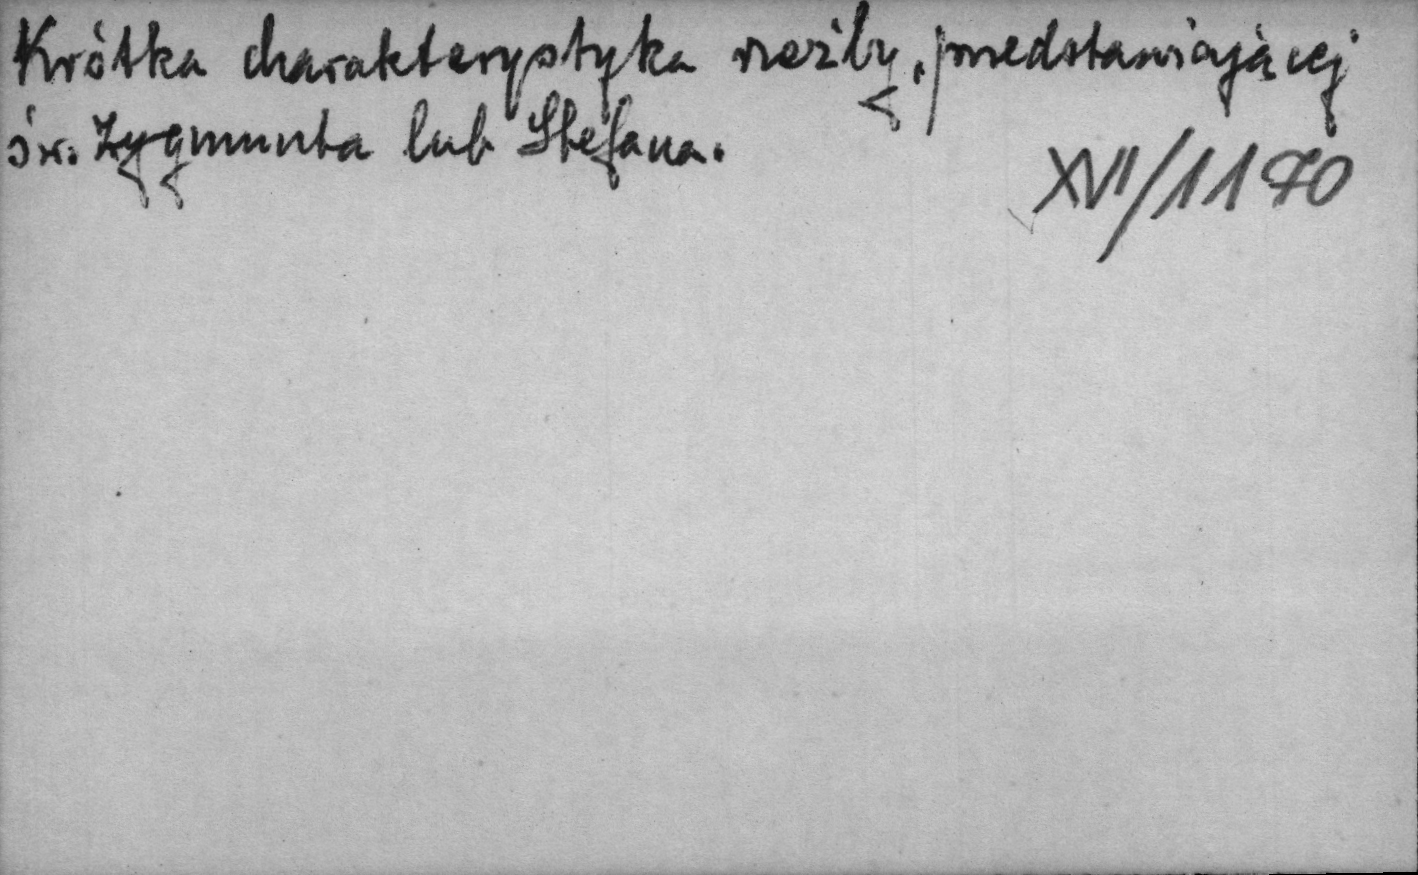 Krótka charakterystyka rzeźby, przedstawiającej
św. Zygmunta lub Stefana.
XVII/1170